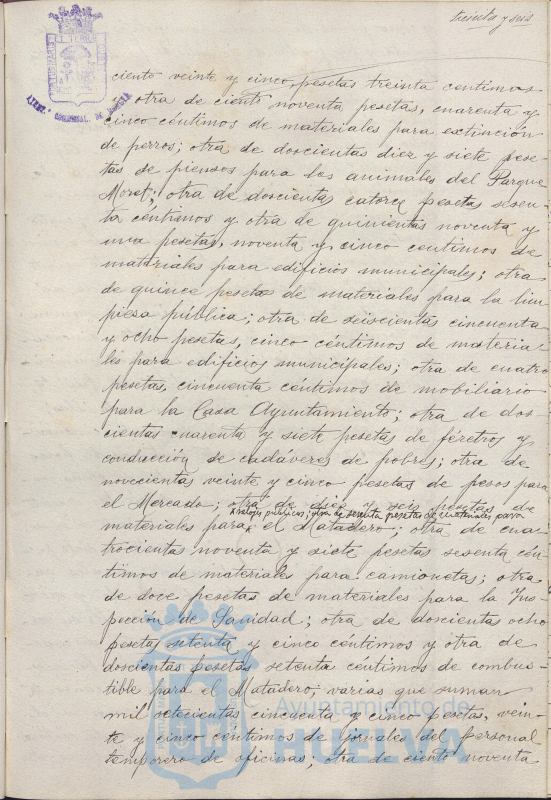 treinta y seis
ciento veinte y cinco pesetas treinta centimos
otra de ciento noventa pesetas, cuarenta y
cinco céntimos de materiales para extinción
de perros; otra de doscientas diez y siete pese-
tas de piensos para los animales del Parque
Moret; otra de doscientas catorce pesetas sesen-
ta céntimos y otra de quinientas noventa y
una pesetas, noventa y cinco centimos de
materiales para edificios municipales; otra
de quince pesetas de materiales para la lim
pieza pública; otra de seiscientas cincuenta
y ocho pesetas, cinco céntimos de materia-
les para edificios municipales; otra de cuatro
pesetas, cincuenta céntimos de mobiliario
para la Casa Ayuntamiento; otra de dos-
cientas cuarenta y siete pesetas de féretros y
conducción de cadáveres de pobres; otra de
novecientas veinte y cinco pesetas de pesos para
el Mercado; otra de diez y seis pesetas de
relojes públicos; otra de sesenta pesetas de materiales para
materiales para el Matadero; otra de cua-
trocientas noventa y siete pesetas sesenta cén
timos de materiales para camionetas; otra
de doce pesetas de materiales para la Ins-
pección de Sanidad; otra de doscientas ocho
pesetas setenta y cinco céntimos y otra de
doscientas pesetas setenta centimos de combus-
tible para el Matadero; varias que suman
mil setecientas cincuenta y cinco pesetas, vein-
te y cinco céntimos de jornales del personal
temporero de oficinas; otra de ciento noventa
Ayuntamiento de
HUELVA